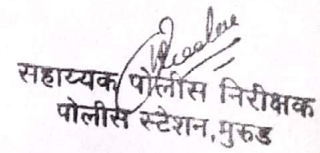 सहाय्यक पोलीस निरीक्षक
पोलीस स्टेशन, मुरुड